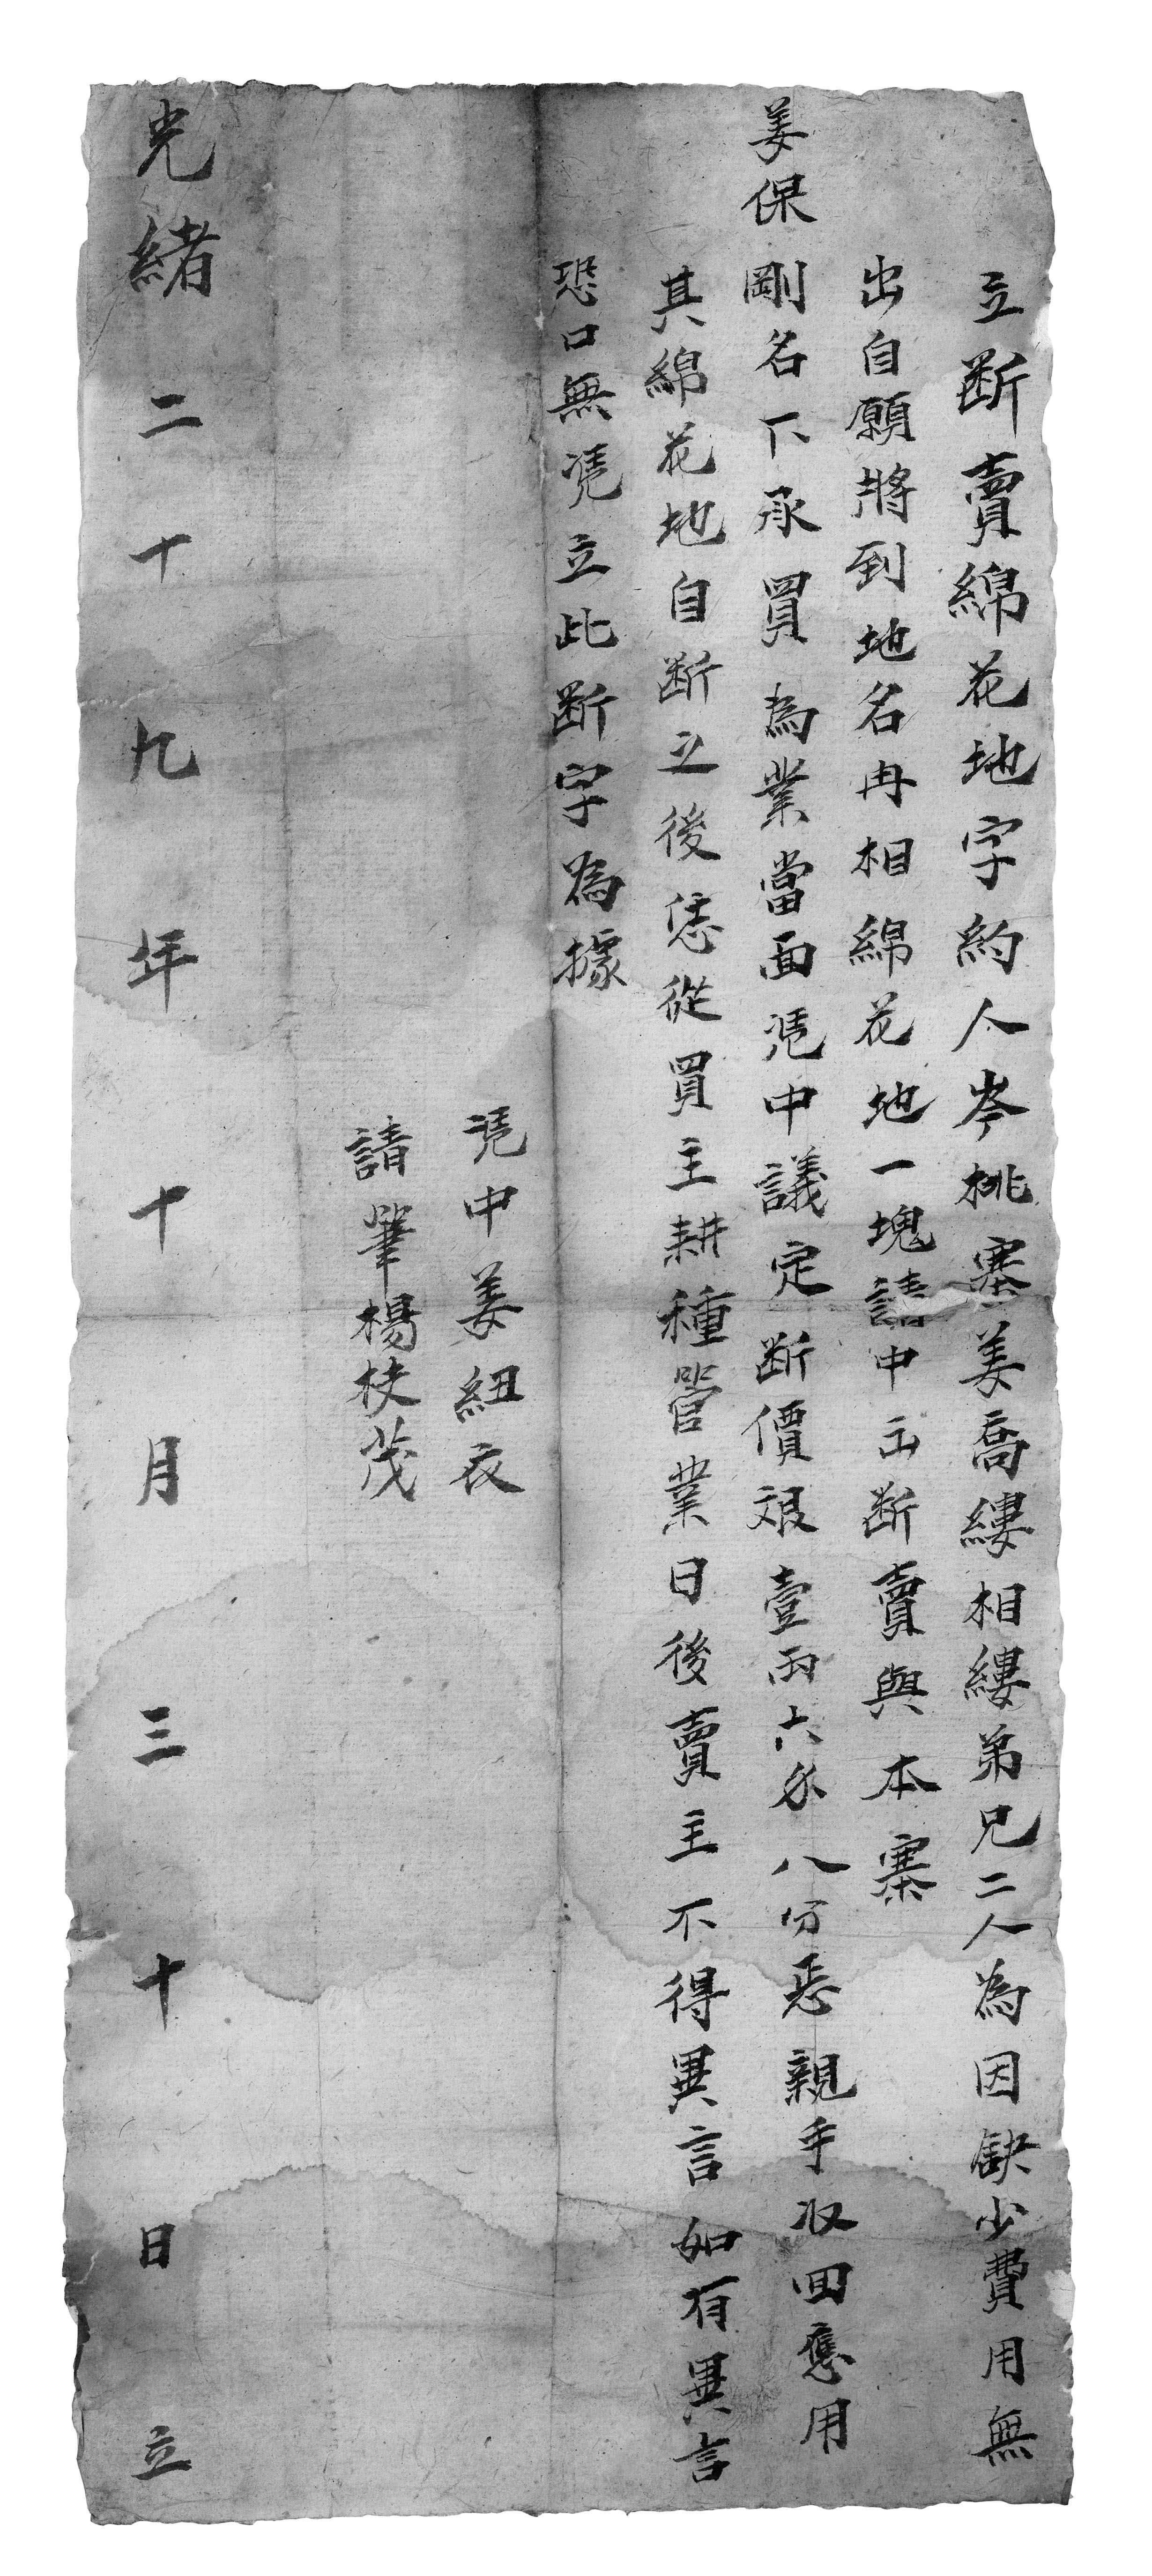 立断賣綿花地字約人岑桃寨姜喬縷相縷弟兄二人為因缺少費用無
出自願將到地名冉相綿花地一塊請中出断賣與本寨
姜保剛名下承買為業當面凴中議定断價艮壹両六錢八分恁親手收回應用
其綿花地自断之後恁從買主耕種管業日後賣主不得異言如有異言
恐口無凴立此断字為據
凴中姜紐衣
請筆楊枝茂
光緒二十九年十月三十日立